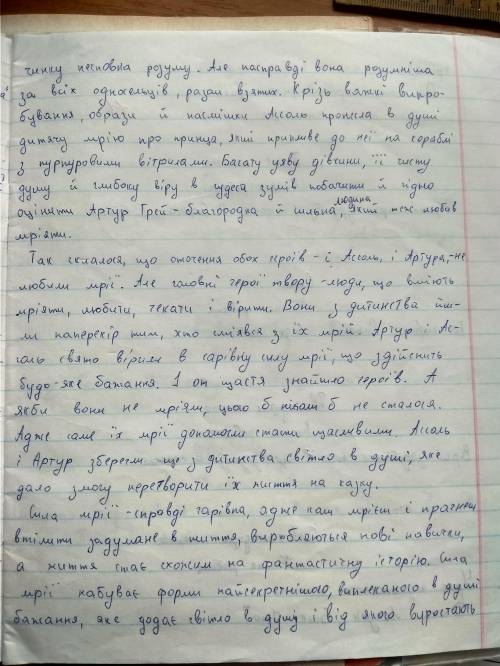 чинку несповна розуму. Але насправді вона розумніша
за всіх односельців, разом взятих. Крізь важкі випро-
бування, образи й насмішки Ассоль пронесла в душі
дитячу мрію про принца, який припливе до неї на кораблі
з пурпуровими вітрилами. Багату уяву дівчини, її чисту
душу й глибоку віру в чудеса зумів побачити й гідно
людина
оцінити Артур Грей - благородна й сильна, який теж любив
мріяти.
Так склалося, що оточення обох героїв - і Ассоль, і Артура, - не
любили мрії. Але головні герої твору - люди, що вміють
мріяти, любити, чекати і вірити. Вони з дитинства йш-
ли наперекір тим, хто сміявся з їх мрій. Артур і Ас-
соль свято вірили в чарівну силу мрії, що здійснить
будь-яке бажання. І от щастя знайшло героїв. А
якби вони не мріяли, цього б ніколи б не сталося.
Адже саме їх мрії допомогли стати щасливими. Ассоль
і Артур зберегли ще з дитинства світло в душі, яке
дало змогу перетворити їх життя на казку.
Сила мрії - справді чарівна, адже коли мрієш і прагнеш
втілити задумане в життя, виробляються нові навички,
а життя стає схожим на фантастичну історію. Сила
мрії набуває форми найсекретнішого, виплеканого в душі
бажання, яке додає світло в душу і від якого виростають